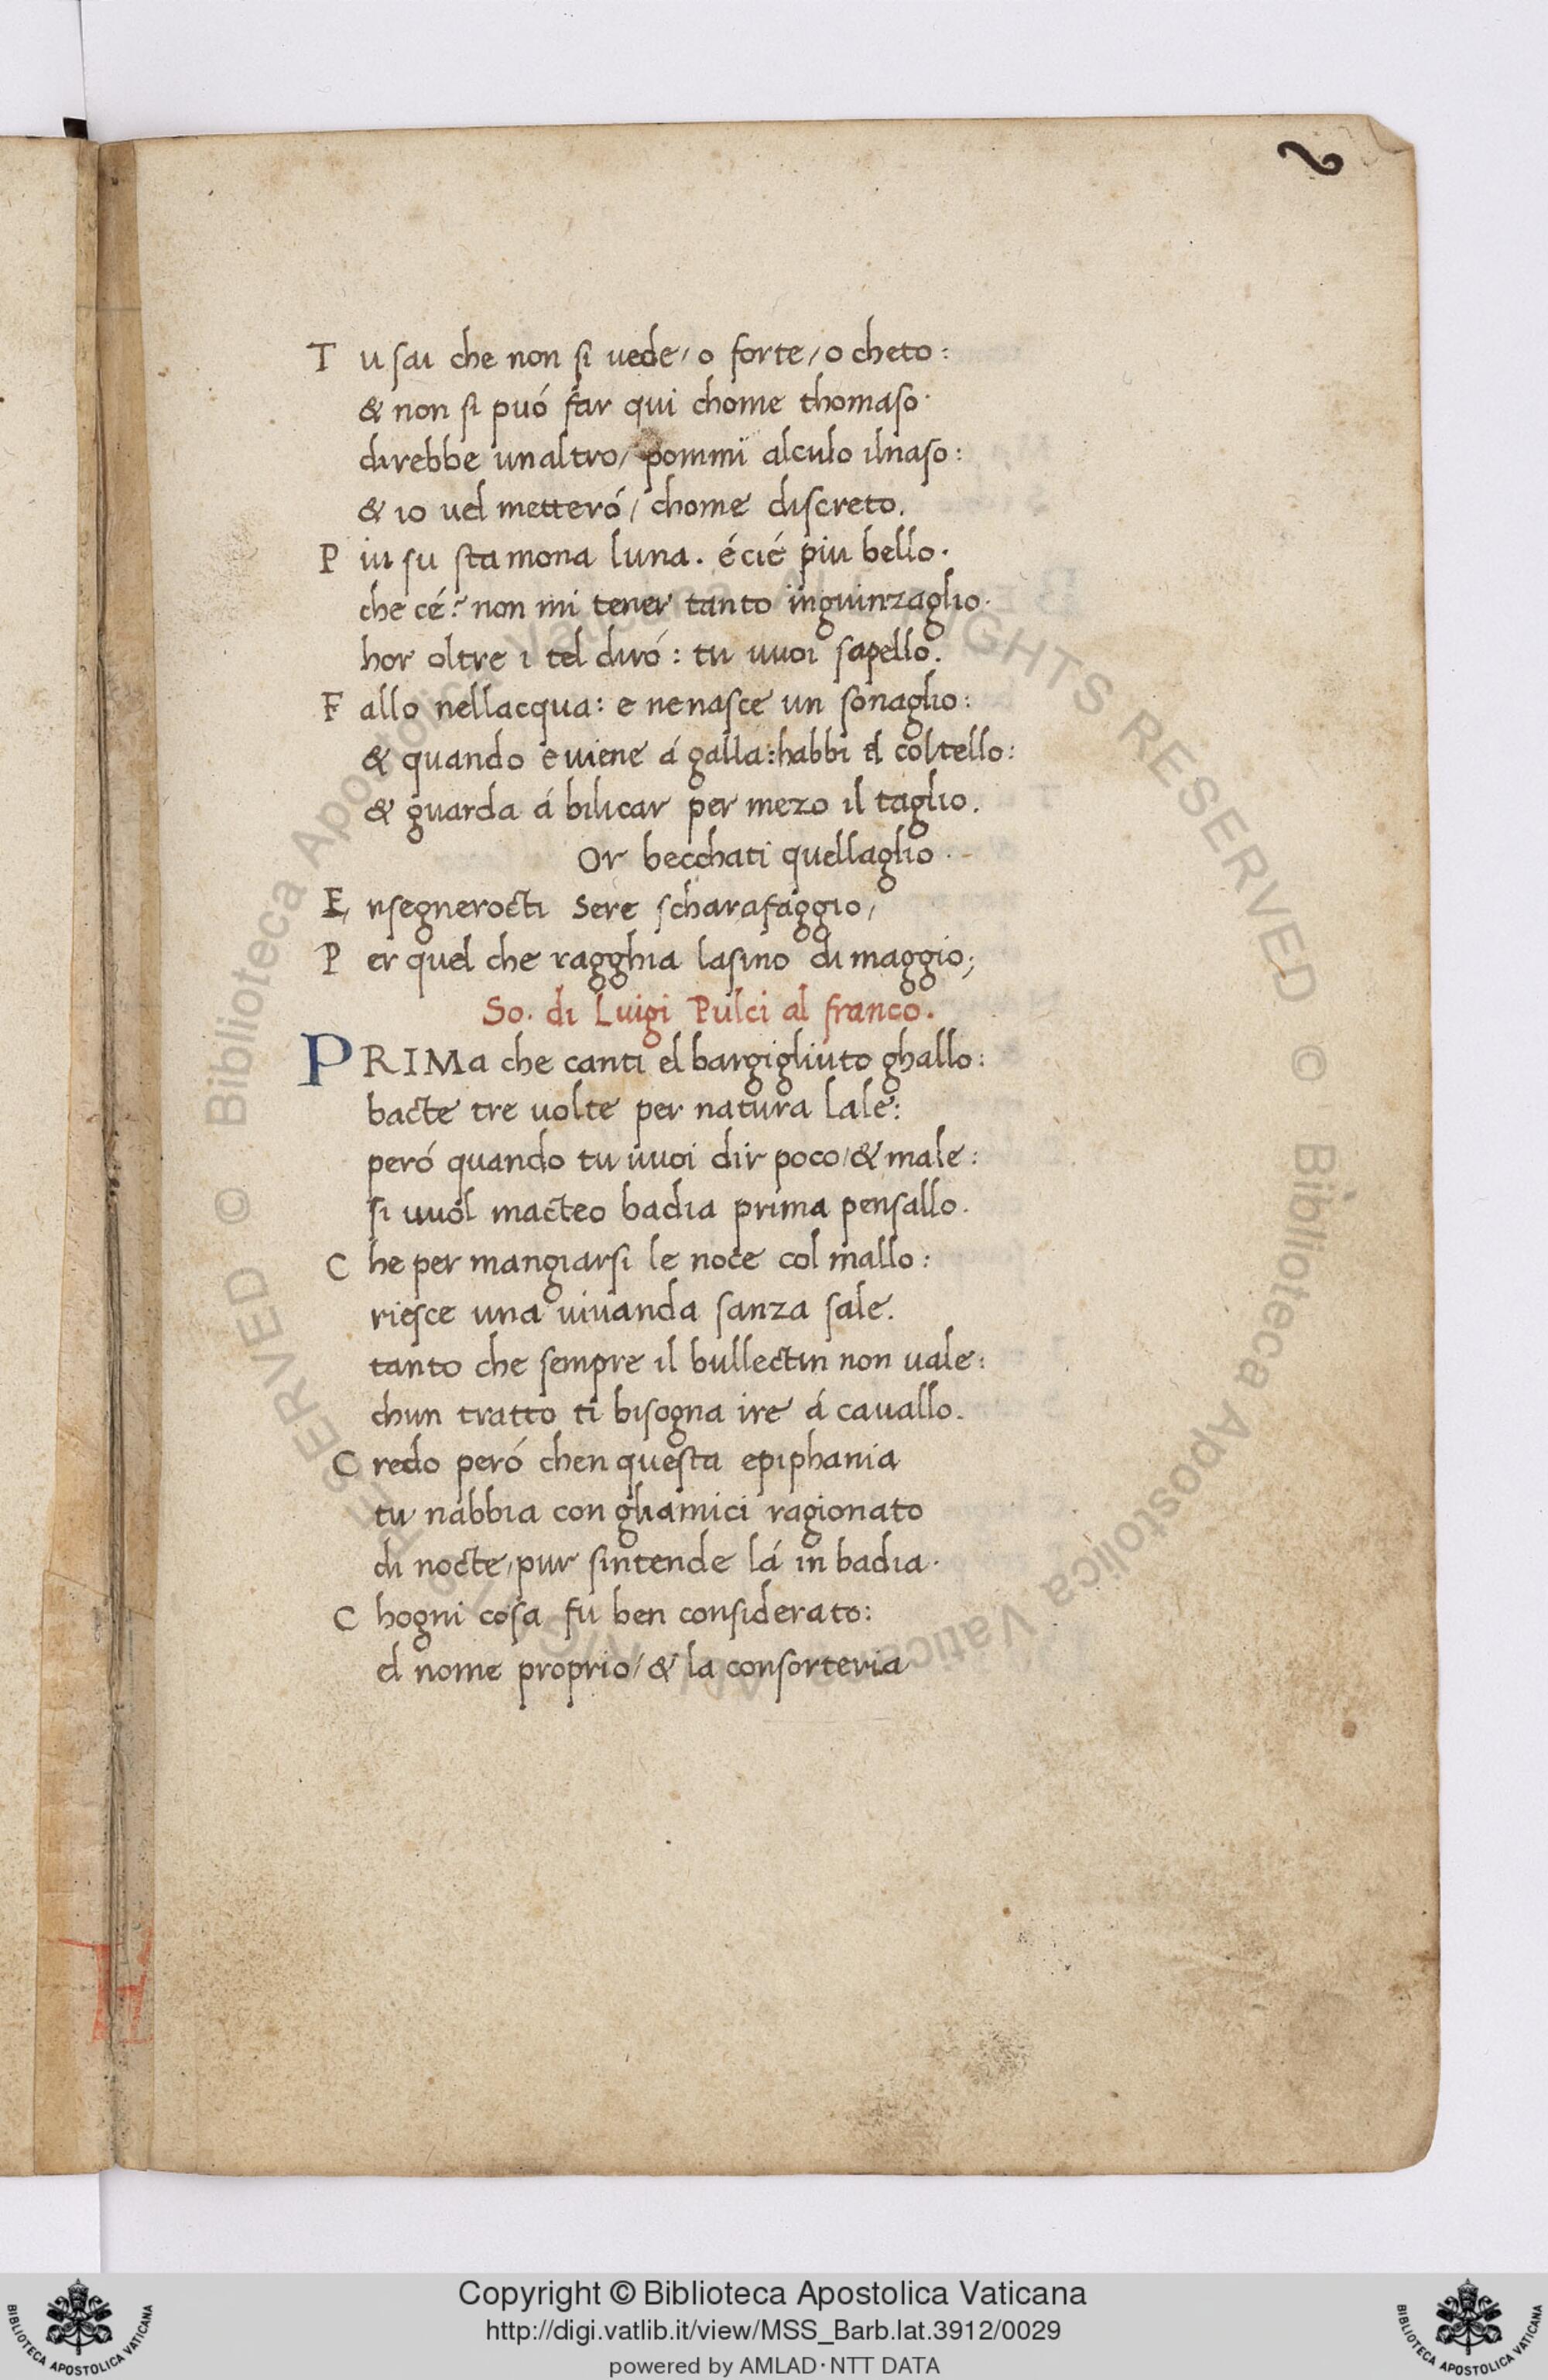 T u sai che non si uede/ o forte/ o cheto:
& non si puó far qui chome thomaso·
direbbe unaltro/ pommi alculo ilnaso:
& io uel metteró/ chome discreto.
P iu su sta mona luna. écié piu bello.
che cé? non mi tener tanto inguinzaglio·
hor oltre i tel diró: tu uuoi sapello.
F allo nellacqua: e nenasce un sonaglio:
& quando e uiene á galla: habbi el coltello:
& guarda á bilicar per mezo il taglio.
Or becchati quellaglio·
E nsegnerocti Sere scharafaggio/
P er quel che ragghia lasino di maggio;
So. di Luigi Pulci al franco.
PRIMa che canti el bargigliuto ghallo:
bacte tre uolte per natura lale:
peró quando tu uuoi dir poco/ & male:
si uuol macteo badia prima pensallo.
C he per mangiarsi le noce col mallo:
riesce una uiuanda sanza sale.
tanto che sempre il bullectin non uale:
chun tratto ti bisogna ire á cauallo.
C redo peró chen questa epiphania
tu nabbia con gliamici ragionato
di nocte/ pur sintende lá in badia·
C hogni cosa fu ben considerato:
el nome proprio/ & la consorteria
Copyright © Biblioteca Apostolica Vaticana
http://digi.vatlib.it/view/MSS_Barb.lat.3912/0029
powered by AMLAD·NTT DATA